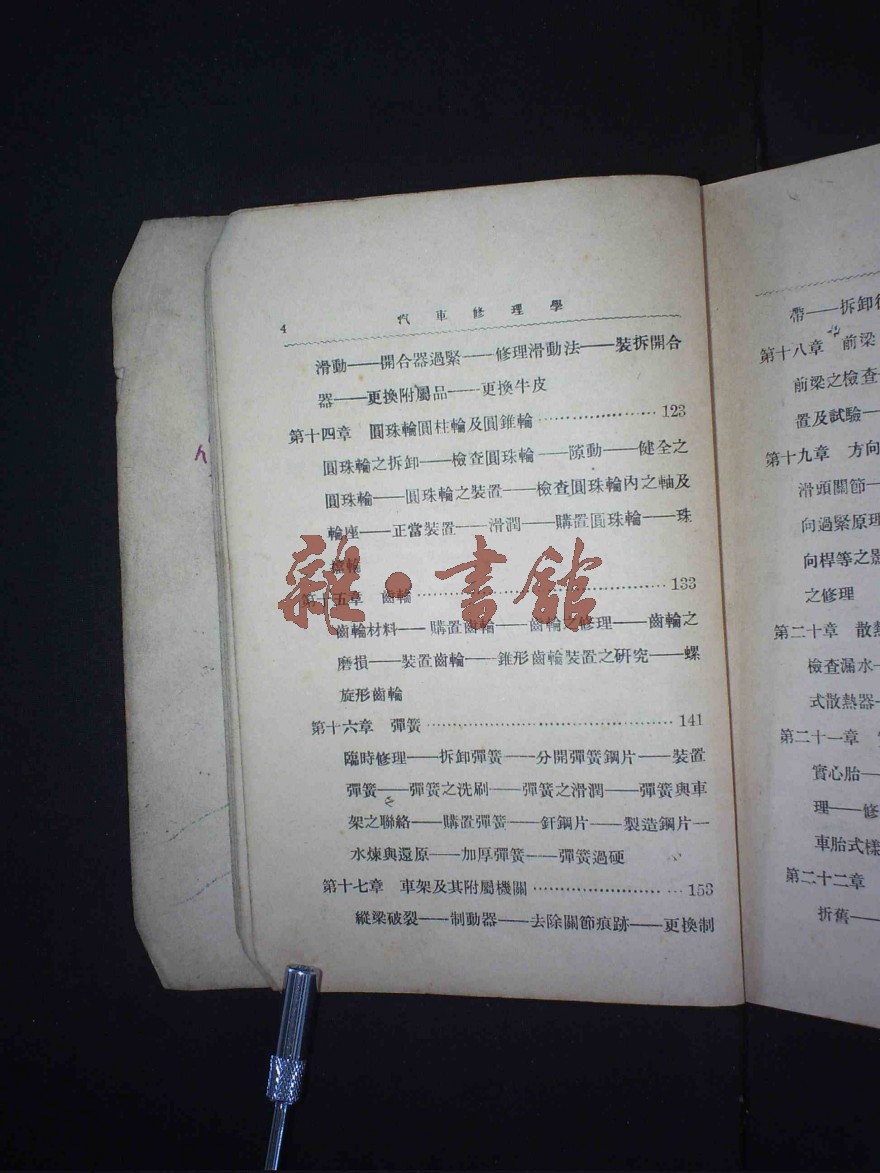 4 汽車修理學
滑動——開合器過緊——修理滑動法——裝拆開合
器——更換附屬品——更換牛皮
第十四章 圓珠輪圓柱輪及圓錐輪…………………123
圓珠輪之拆卸——檢查圓珠輪——隙動——健全之
圓珠輪——圓珠輪之裝置——檢查圓珠輪內之軸及
輪座——正當裝置——滑潤——購置圓珠輪——珠
輪
第十五章 齒輪…………………133
齒輪材料——購置齒輪——齒輪之修理——齒輪之
磨損——裝置齒輪——錐形齒輪裝置之研究——螺
旋形齒輪
第十六章 彈簧…………………141
臨時修理——拆卸彈簧——分開彈簧鋼片——裝置
彈簧——彈簧之洗刷——彈簧之滑潤——彈簧與車
架之聯絡——購置彈簧——釬鋼片——製造鋼片—
水煉與還原——加厚彈簧——彈簧過硬
第十七章 車架及其附屬機關…………………153
縱梁破裂——制動器——去除關節痕跡——更換制
雜·書館
帶——拆卸
第十八章 前梁
前梁之檢查
置及試驗——
第十九章 方向
滑頭關節—
向過緊原理
向桿等之影
之修理
第二十章 散熱
檢查漏水—
式散熱器—
第二十一章
實心胎—
理——修
車胎式樣
第二十二章
折舊——